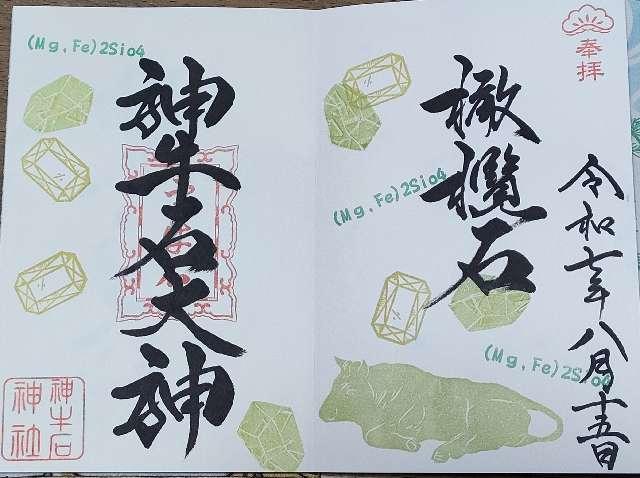 奉拝
橄欖石
令和七年八月十五日
(Mg,Fe)2Sio4
(Mg,Fe)2Sio4
(Mg,Fe)2Sio4
神牛石大神
神牛石
神社